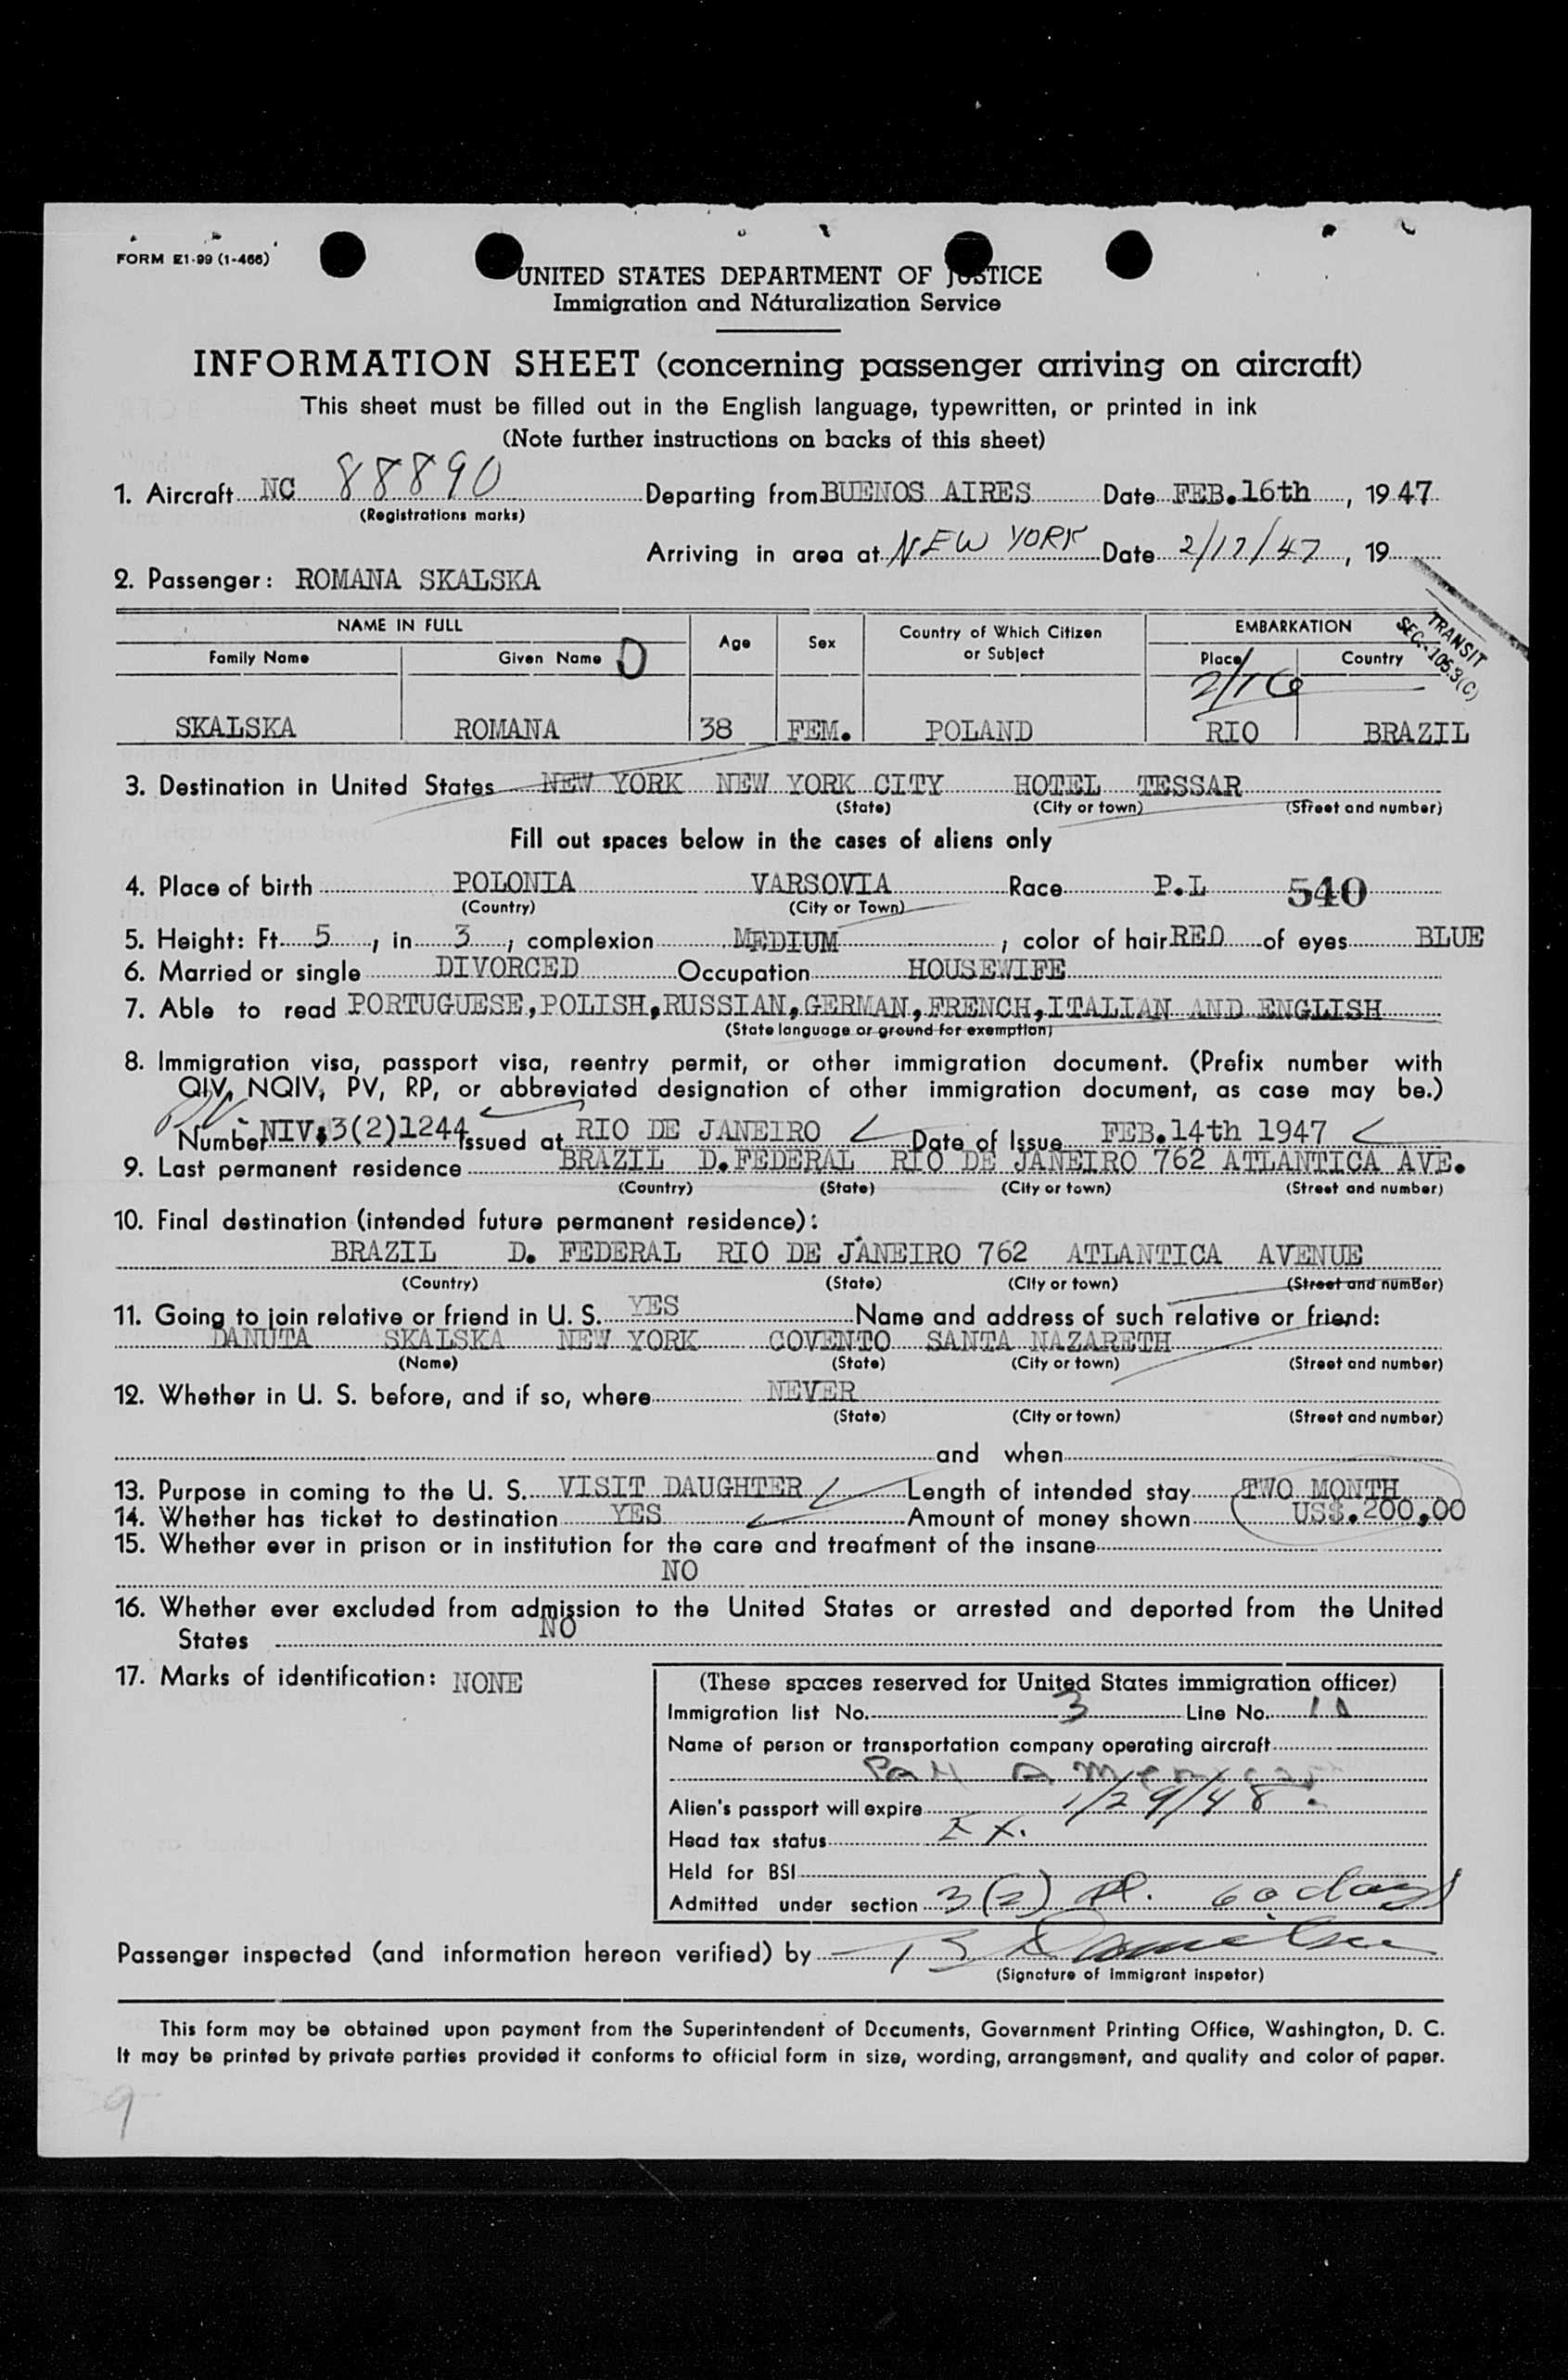 FORM E1-99 (1-466)
UNITED STATES DEPARTMENT OF JUSTICE
Immigration and Naturalization Service
INFORMATION SHEET (concerning passenger arriving on aircraft)
This sheet must be filled out in the English language, typewritten, or printed in ink
(Note further instructions on backs of this sheet)
1. Aircraft NC 88890 Departing from BUENOS AIRES Date FEB.16th, 19 47
(Registrations marks)
Arriving in area at NEW YORK Date 2/17/47, 19
2. Passenger: ROMANA SKALSKA
TRANSIT
SEC. 105.3(C)
NAME IN FULL Age Sex Country of Which Citizen or Subject EMBARKATION
Family Name Given Name Place Country
2/16
SKALSKA ROMANA 38 FEM. POLAND RIO BRAZIL
3. Destination in United States NEW YORK NEW YORK CITY HOTEL TESSAR
(State) (City or town) (Street and number)
Fill out spaces below in the cases of aliens only
4. Place of birth POLONIA VARSOVIA Race P.L 540
(Country) (City or Town)
5. Height: Ft. 5, in 3; complexion MEDIUM; color of hair RED of eyes BLUE
6. Married or single DIVORCED Occupation HOUSEWIFE
7. Able to read PORTUGUESE,POLISH,RUSSIAN,GERMAN,FRENCH,ITALIAN AND ENGLISH
(State language or ground for exemption)
8. Immigration visa, passport visa, reentry permit, or other immigration document. (Prefix number with
QIV, NQIV, PV, RP, or abbreviated designation of other immigration document, as case may be.)
Number NIV.3(2)1244 Issued at RIO DE JANEIRO Date of Issue FEB.14th 1947
9. Last permanent residence BRAZIL D.FEDERAL RIO DE JANEIRO 762 ATLANTICA AVE.
(Country) (State) (City or town) (Street and number)
10. Final destination (intended future permanent residence):
BRAZIL D. FEDERAL RIO DE JANEIRO 762 ATLANTICA AVENUE
(Country) (State) (City or town) (Street and number)
11. Going to join relative or friend in U. S. YES Name and address of such relative or friend:
DANUTA SKALSKA NEW YORK COVENTO SANTA NAZARETH
(Name) (State) (City or town) (Street and number)
12. Whether in U. S. before, and if so, where NEVER
(State) (City or town) (Street and number)
and when
13. Purpose in coming to the U. S. VISIT DAUGHTER Length of intended stay TWO MONTH
14. Whether has ticket to destination YES Amount of money shown US$.200,00
15. Whether ever in prison or in institution for the care and treatment of the insane
NO
16. Whether ever excluded from admission to the United States or arrested and deported from the United
States NO
17. Marks of identification: NONE
(These spaces reserved for United States immigration officer)
Immigration list No. 3 Line No.
Name of person or transportation company operating aircraft
Pan American
Alien's passport will expire 1/29/48.
Head tax status Ex.
Held for BSI
Admitted under section 3(2) 60 days
Passenger inspected (and information hereon verified) by
(Signature of immigrant inspetor)
This form may be obtained upon payment from the Superintendent of Documents, Government Printing Office, Washington, D. C.
It may be printed by private parties provided it conforms to official form in size, wording, arrangement, and quality and color of paper.
9